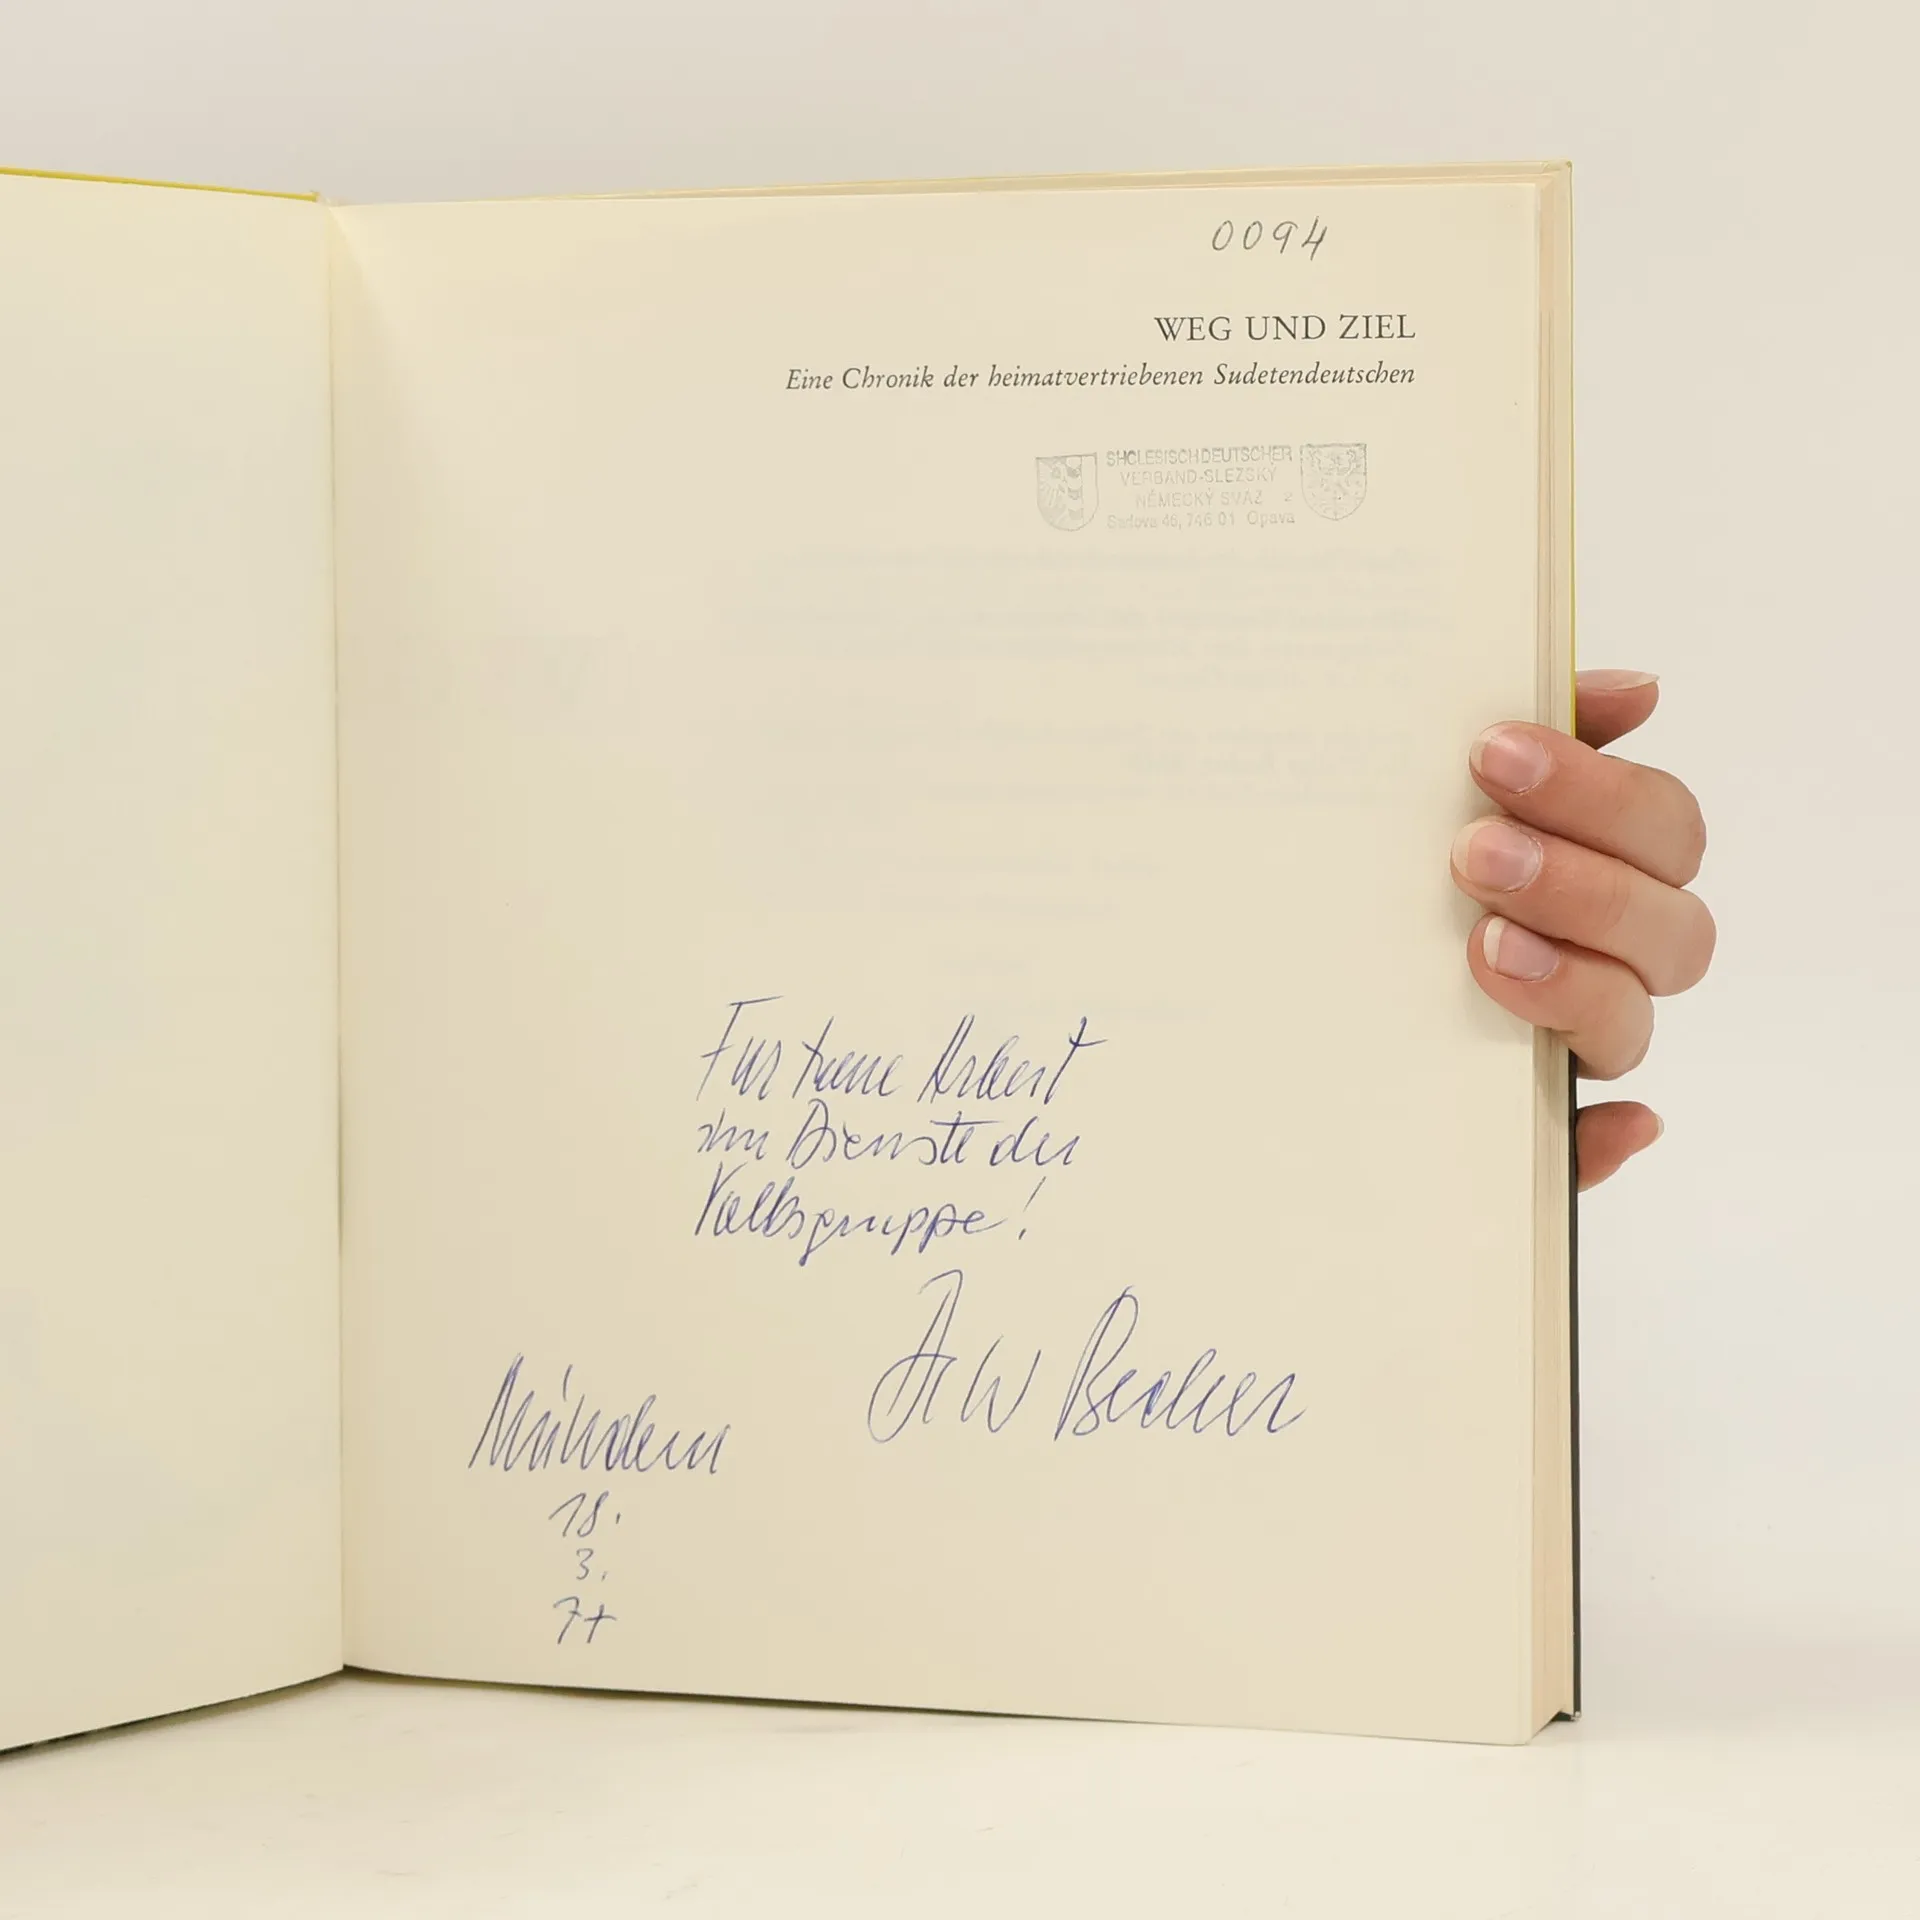 0094
WEG UND ZIEL
Eine Chronik der heimatvertriebenen Sudetendeutschen
SHCLESISCHDEUTSCHER
VERBAND-SLEZSKÝ
NĚMECKÝ SVAZ 2
Sadova 46, 746 01 Opava
Für treue Arbeit
im Dienste der
Volksgruppe!
Dr W Becher
München
18.
3.
74